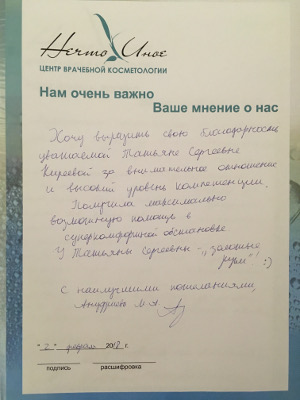 Нечто Иное
ЦЕНТР ВРАЧЕБНОЙ КОСМЕТОЛОГИИ
Нам очень важно
Ваше мнение о нас
Хочу выразить свою благодарность
уважаемой Татьяне Сергеевне
за внимательное отношение
и высокий уровень компетенции.
Получила максимально
возможную помощь в
суперкомфортной обстановке
У Татьяны Сергеевны - "золотые
руки"! :)
С наилучшими пожеланиями,
М.А.
"2" февраля 2018 г.
подпись расшифровка